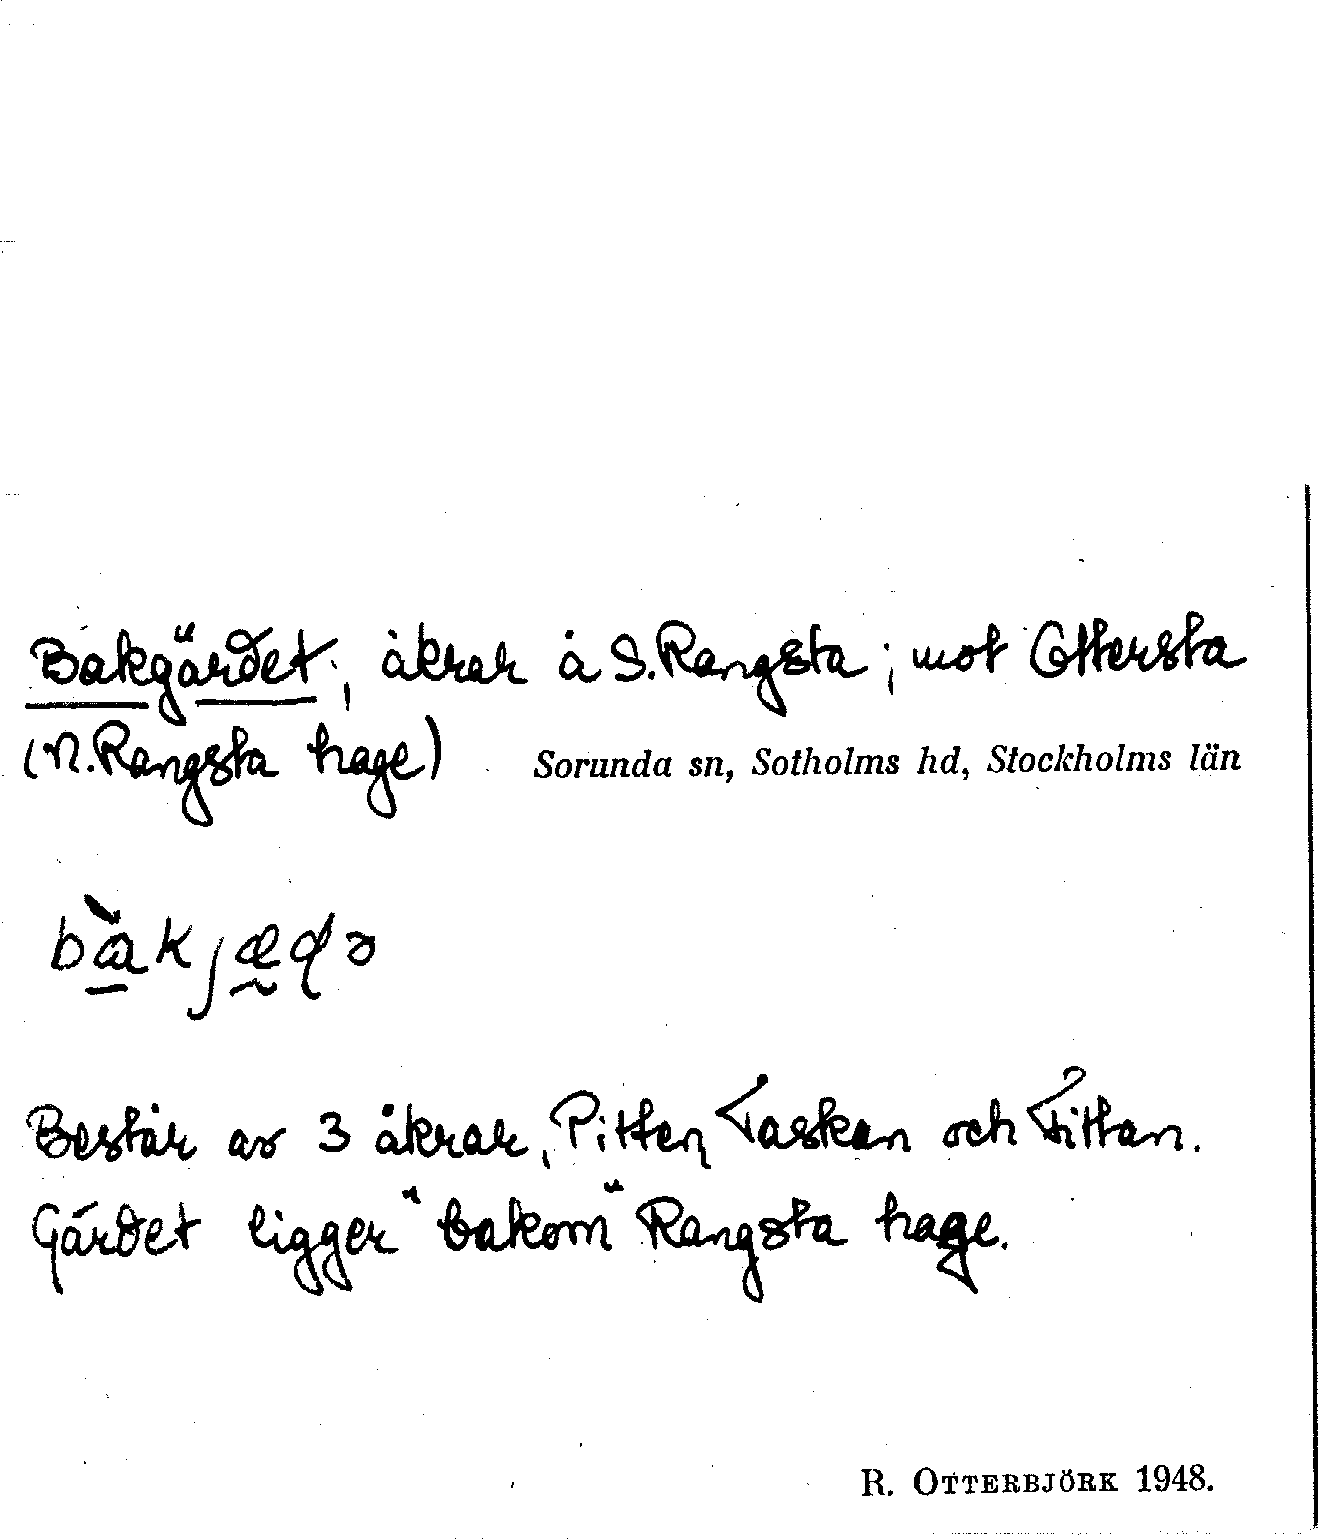 Bakgärdet; åkrar å S. Rangsta; mot Ottersta
(N. Rangsta hage) Sorunda sn, Sotholms hd, Stockholms län
bàkjæɖə
Består av 3 åkrar, Pitten, Taskan och Fittan.
Gärdet ligger "bakom" Rangsta hage.
R. OTTERBJÖRK 1948.